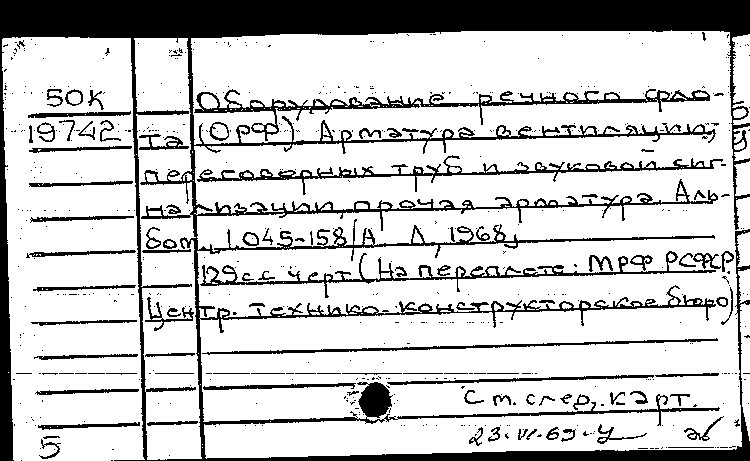 50К Оборудование речного фло-
19742 та (ОРФ). Арматура вентиляции,
переговорных труб и звуковой сиг-
нализации, прочая арматура. Аль-
бом, 1.045-158/А Л, 1968,
129с.с черт (На переплете: МРФ РСФСР
Центр. технико-конструкторское бюро)
См. след. карт.
5 23.VI.69